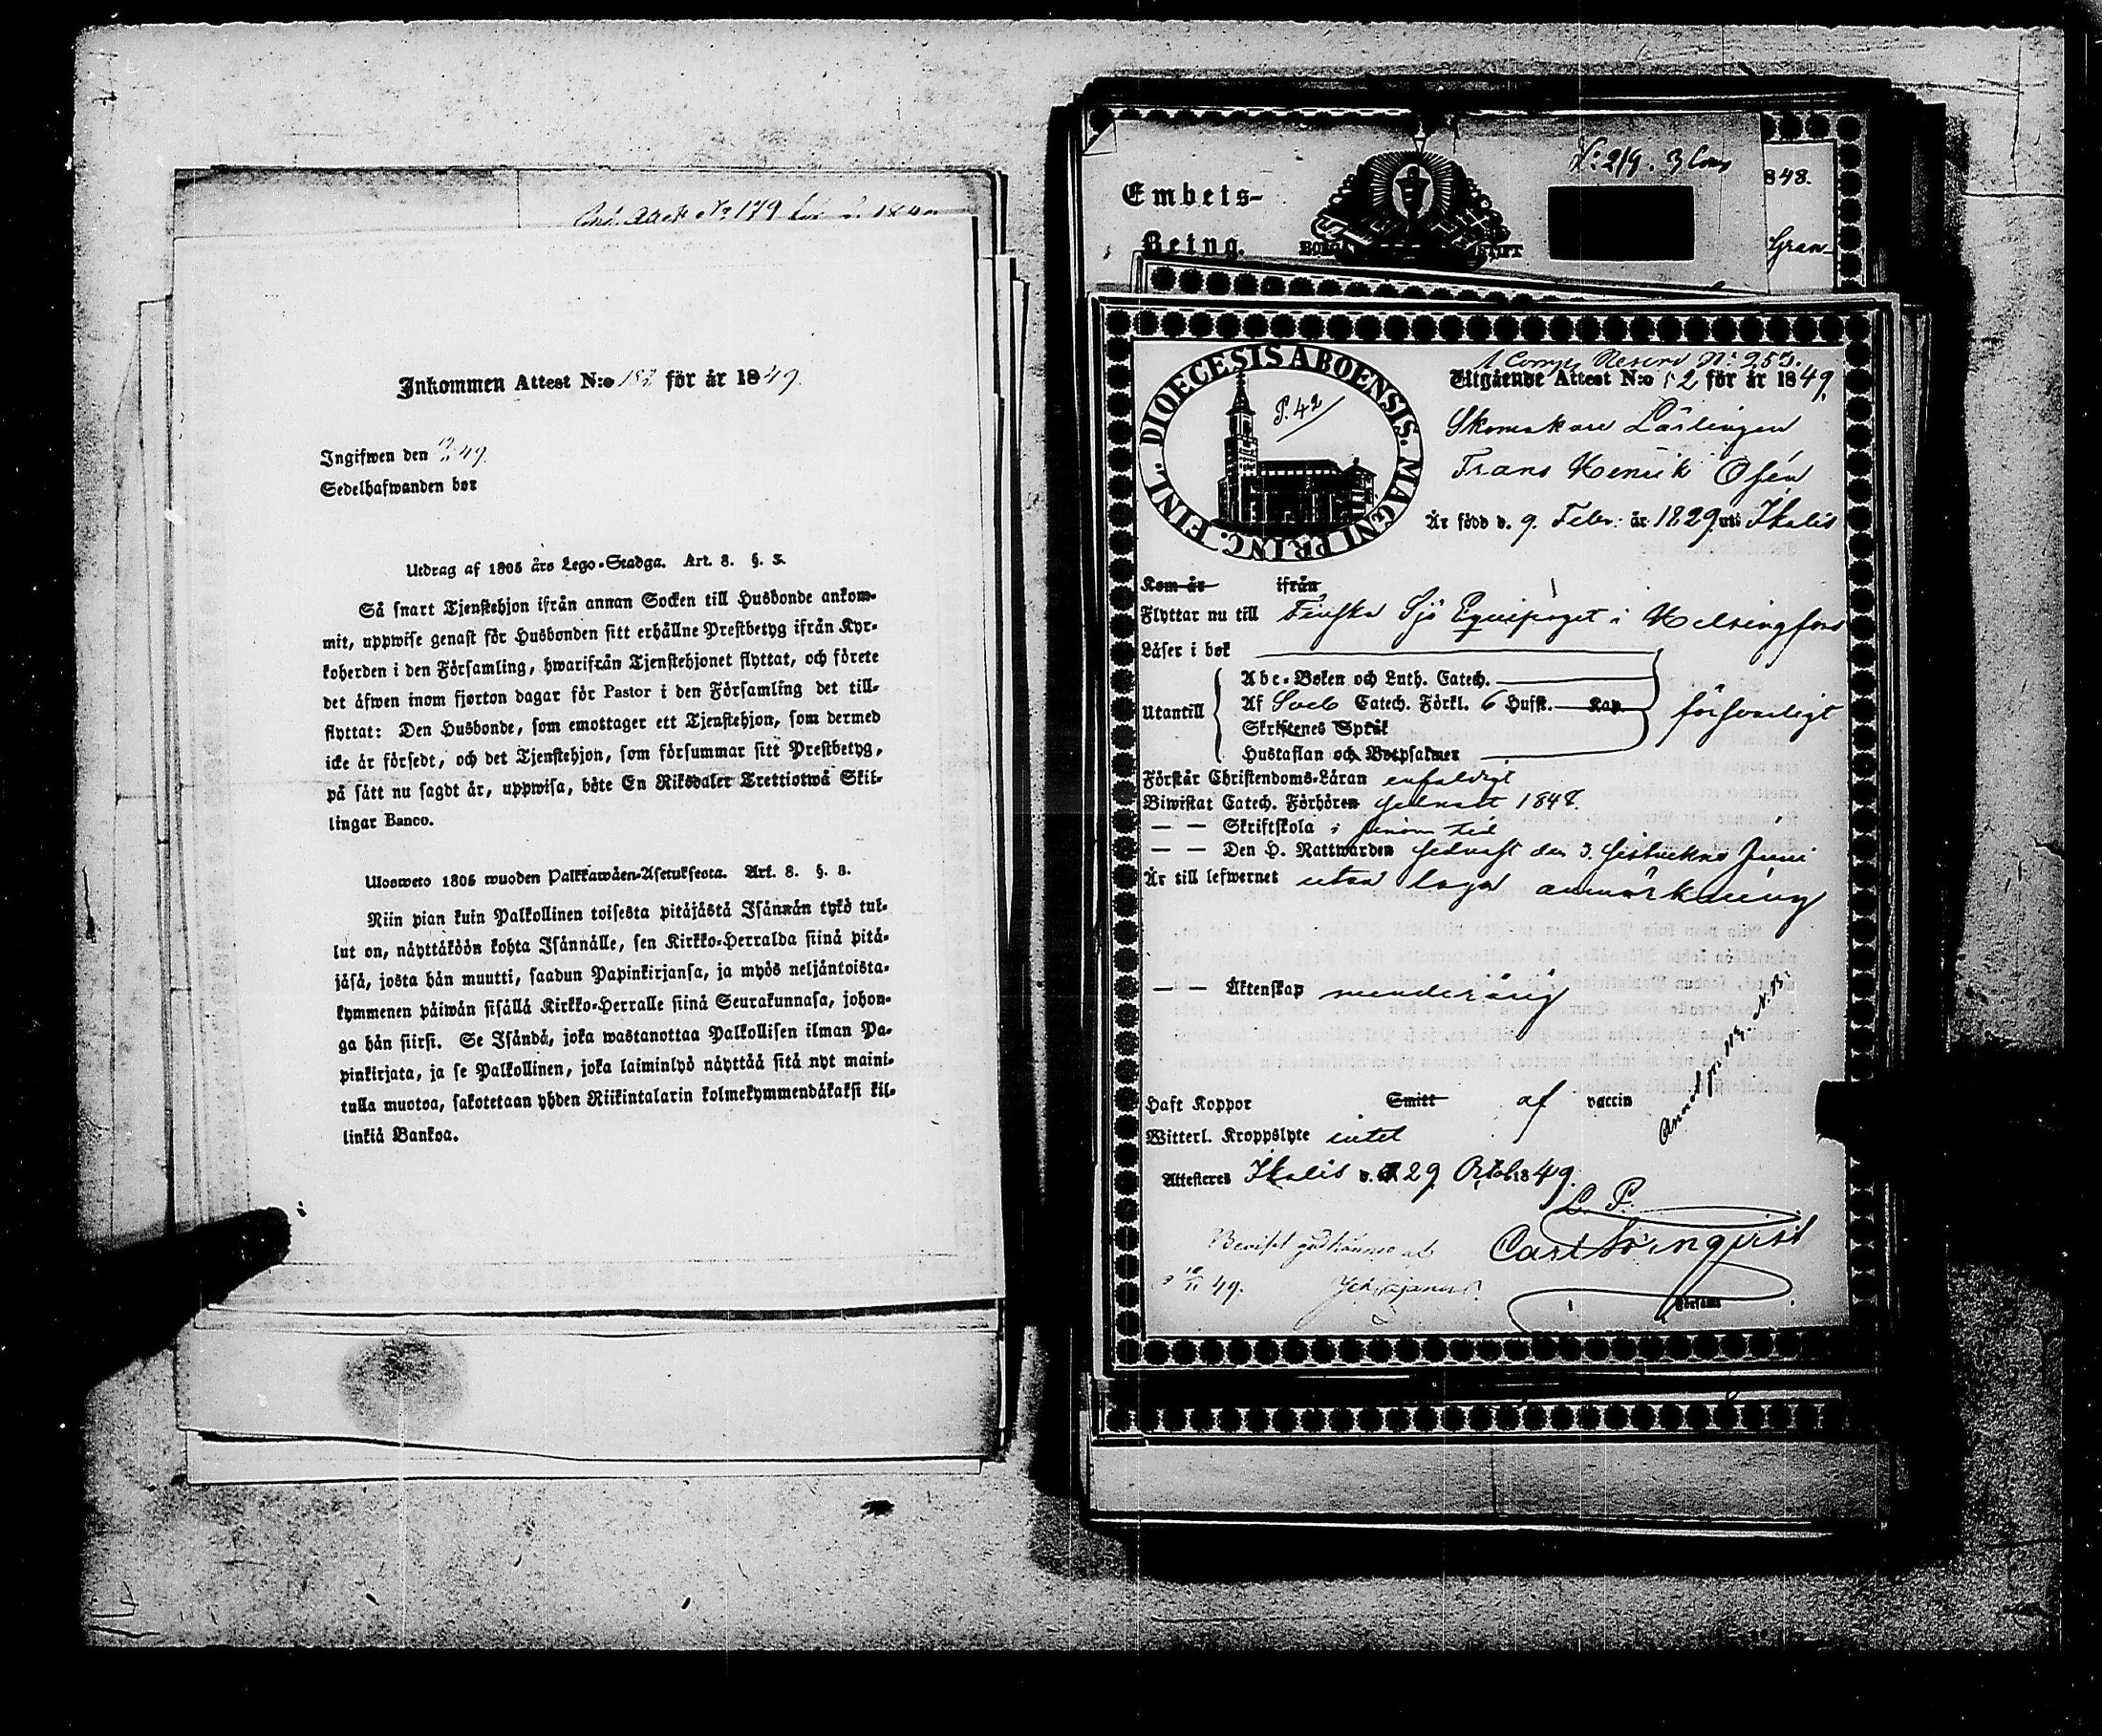 Inkommen Attest N:o 182 för år 1849.
Ingifwen den 12/11 49.
Sedelhafwanden bor
Utdrag af 1805 års Lego-Stadga. Art. 8. §. 3.
Så snart Tjenstehjon ifrån annan Socken till Husbonde ankom-
mit, uppwise genast för Husbonden sitt erhållne Prestbetyg ifrån Kyr-
koherden i den Församling, hwarifrån Tjenstehjonet flyttat, och förete
det äfwen inom fjorton dagar för Pastor i den Församling det till-
flyttat: Den Husbonde, som emottager ett Tjenstehjon, som dermed
icke är försedt, och det Tjenstehjon, som försummar sitt Prestbetyg,
på sätt nu sagdt är, uppwisa, böte En Riksdaler Trettiotwå Skil-
lingar Banco.
Ulosweto 1805 wuoden Palkkawäen-Asetuksesta. Art. 8. §. 3.
Niin pian kuin Palkollinen toisesta pitäjästä Isännän tykö tul-
lut on, näyttäköön kohta Isännälle, sen Kirkko-Herralda siinä pitä-
jäsä, josta hän muutti, saadun Papinkirjansa, ja myös neljäntoista-
kymmenen päiwän sisällä Kirkko-Herralle siinä Seurakunnasa, johon-
ga hän siirsi. Se Isändä, joka wastanottaa Palkollisen ilman Pa-
pinkirjata, ja se Palkollinen, joka laiminlyö näyttää sitä nyt maini-
tulla muotoa, sakotetaan yhden Riikintalarin kolmekymmendäkaksi kil-
linkiä Bankoa.
N:219. 3 Com
848.
Embets-
Betyg.
STIFT
Gran-
DIOECESIS ABOENSIS. MAGNI PRINC. FINL.
P. 42
1 Comp. Reserv N:253.
Utgående Attest N:o 52 för år 1849.
Skomakare Lärlingen
Frans Henrik Osén
Är född d. 9. Febr: år 1829 uti Ikalis
Kom år ifrån
Flyttar nu till Finska Sjö Equipaget i Helsingfors
Läser i bok
Abc-Boken och Luth. Catech.
Utantill Af Sveb Catech. Förkl. 6 Hufst. Kap. försvarligt
Skriftenes Språk
Hustaflan och Botpsalmer
Förstår Christendoms-Läran enfaldigt
Biwistat Catech. Förhören sednast 1848.
— — Skriftskola i sinom tid
— — Den H. Nattwarden sednast den 3. sistvekne Juni
Är till lefwernet utan laga anmärkning
— — Äktenskap minderårig
Haft Koppor Smitt af vaccin
Witterl. Kroppslyte intet
Attesteres Ikalis d. 29 Octob 1849.
L. P.
Carl Törnqvist
49.